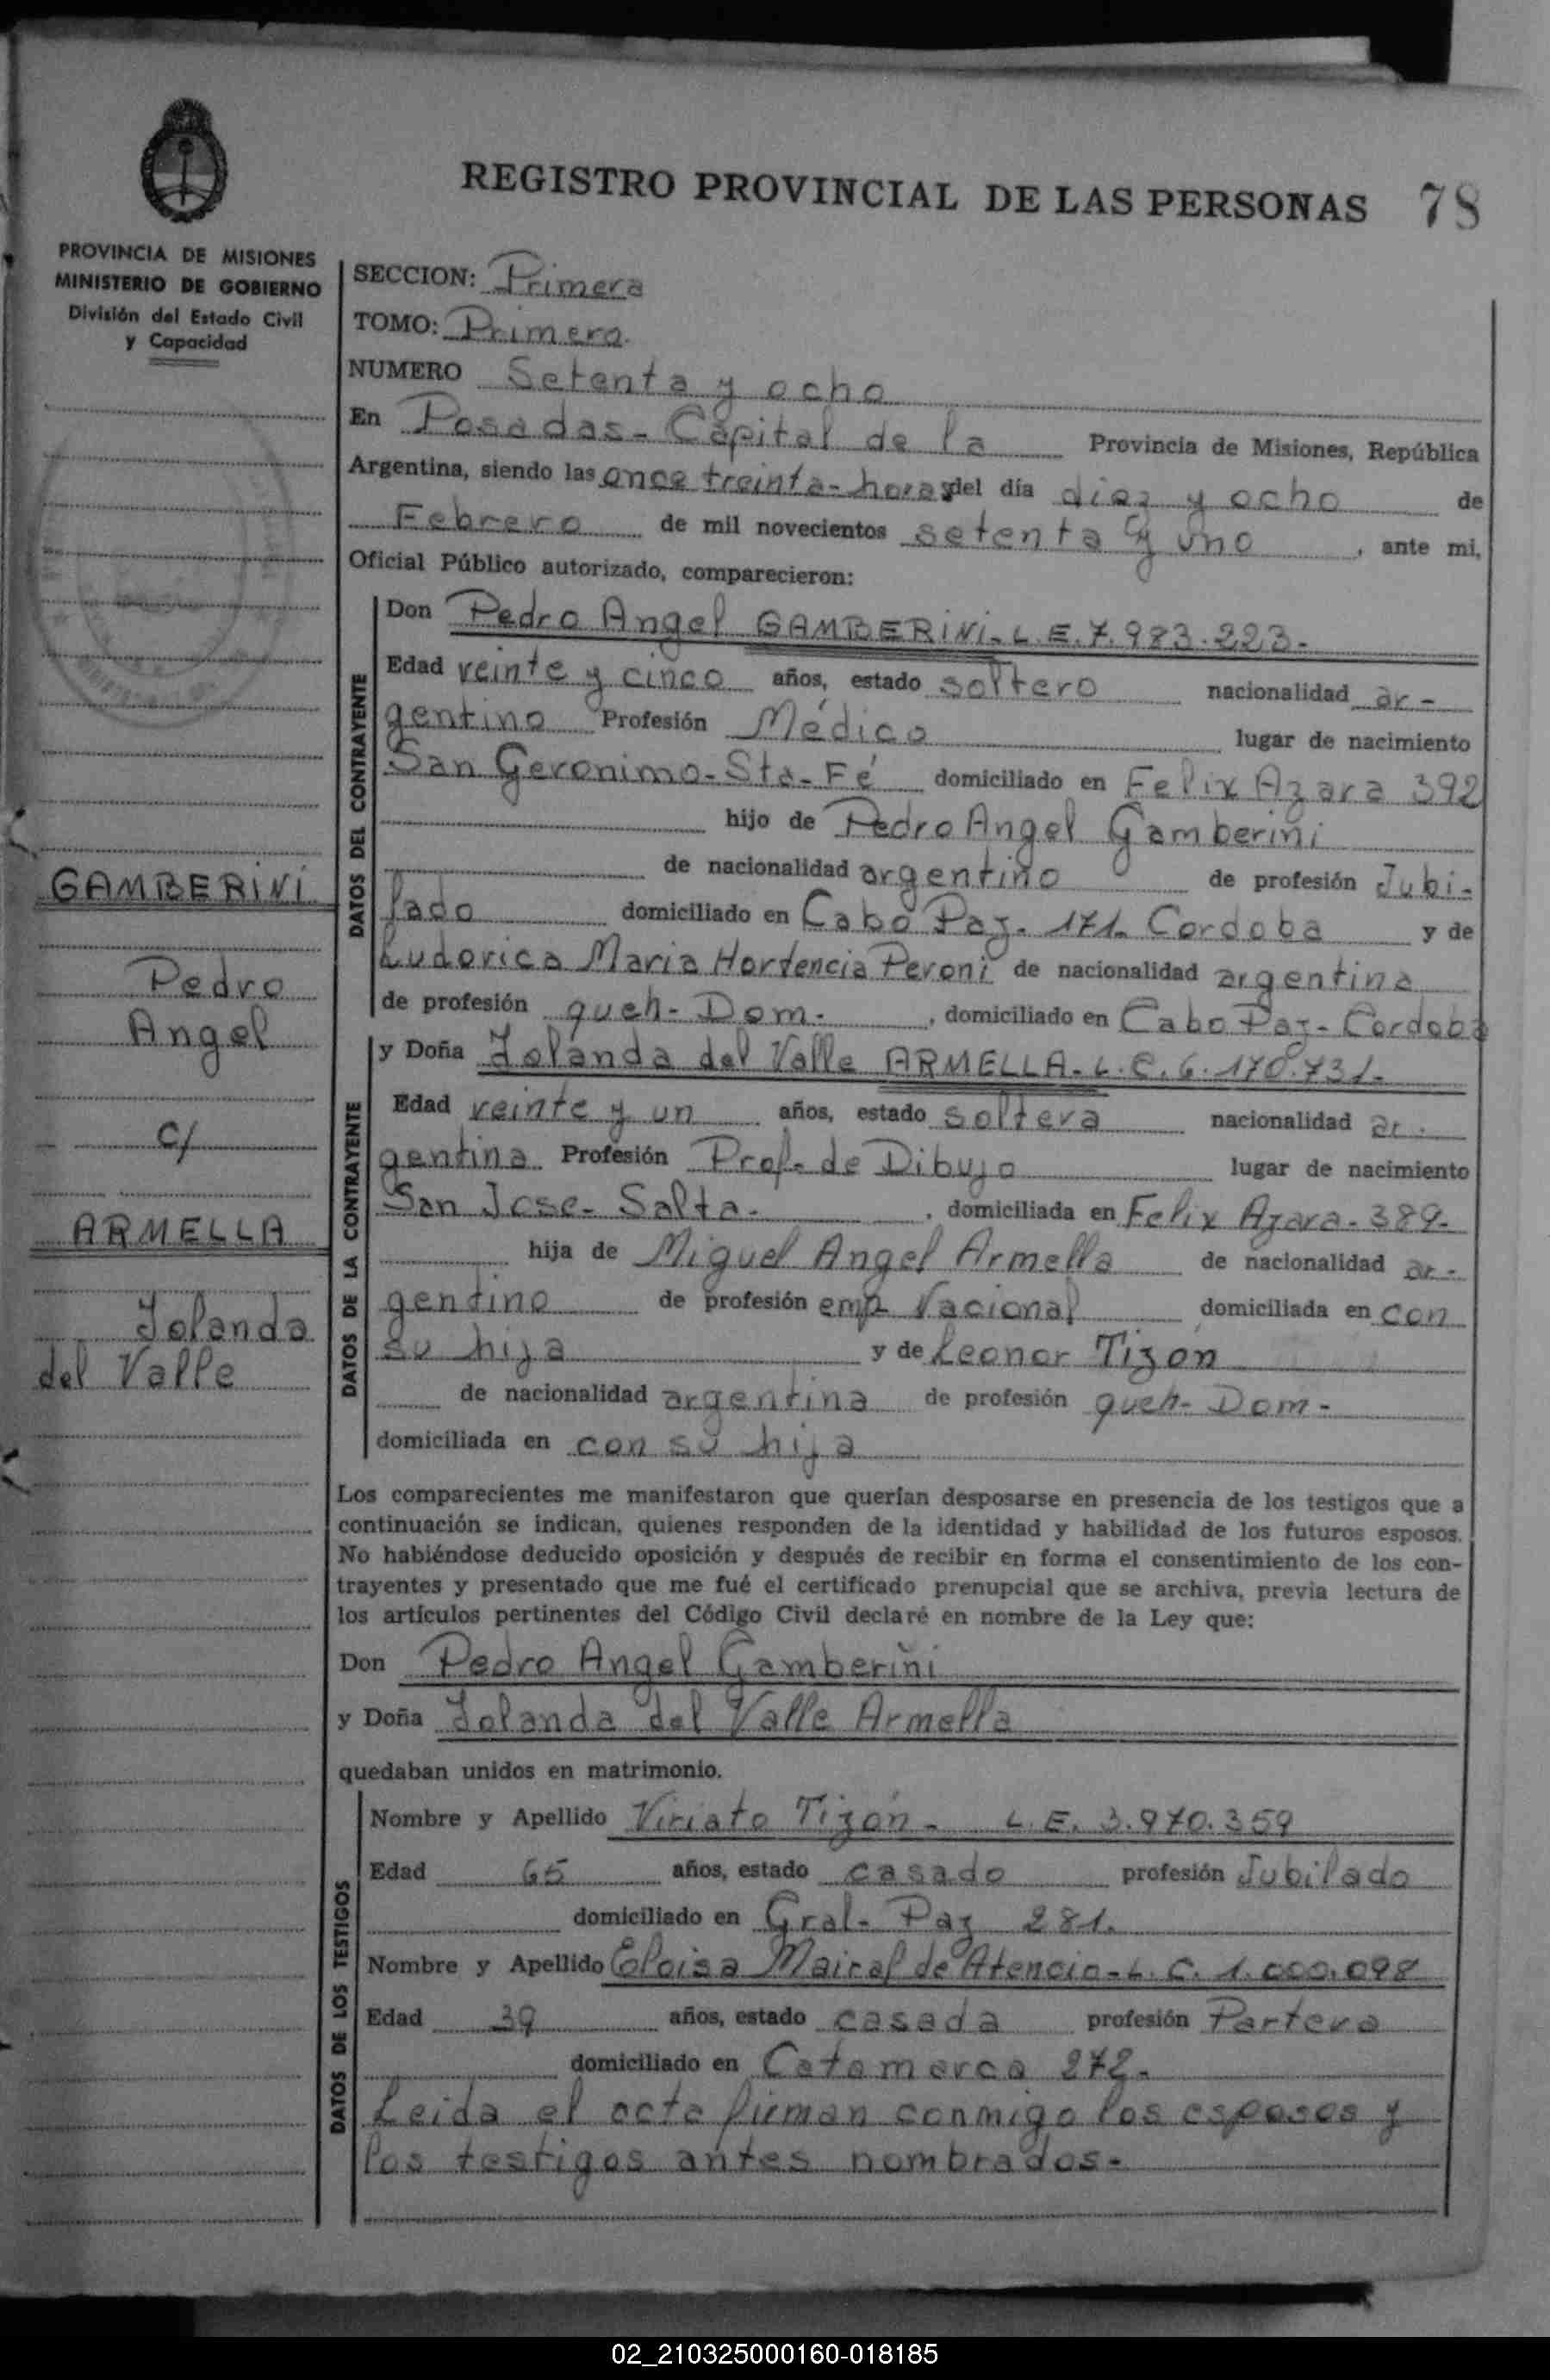 REGISTRO PROVINCIAL DE LAS PERSONAS 78
PROVINCIA DE MISIONES
MINISTERIO DE GOBIERNO
División del Estado Civil
y Capacidad
GAMBERINI
Pedro
Angel
c/
ARMELLA
Iolanda
del Valle
SECCION: Primera
TOMO: Primero.
NUMERO Setenta y ocho
En Posadas - Capital de la Provincia de Misiones, República
Argentina, siendo las once treinta - horas del día diez y ocho de
Febrero de mil novecientos setenta y uno, ante mi,
Oficial Público autorizado, comparecieron:
DATOS DEL CONTRAYENTE
Don Pedro Angel GAMBERINI - L.E. 7.983.223.-
Edad veinte y cinco años, estado soltero nacionalidad ar-
gentino Profesión Médico lugar de nacimiento
San Geronimo - Sta - Fé domiciliado en Felix Azara 392
hijo de Pedro Angel Gamberini
de nacionalidad argentino de profesión Jubi-
lado domiciliado en Cabo Paz. 171. Cordoba y de
Ludovica Maria Hortencia Peroni de nacionalidad argentina
de profesión queh - Dom. -, domiciliado en Cabo Paz - Cordoba
DATOS DE LA CONTRAYENTE
y Doña Iolanda del Valle ARMELLA - L.C. 6.170.731.-
Edad veinte y un años, estado soltera nacionalidad ar.
gentina Profesión Prof. de Dibujo lugar de nacimiento
San Jose - Salta -, domiciliada en Felix Azara - 389.
hija de Miguel Angel Armella de nacionalidad ar-
gentino de profesión emp. Nacional domiciliada en con
su hija y de Leonor Tizón
de nacionalidad argentina de profesión queh - Dom -
domiciliada en con su hija
Los comparecientes me manifestaron que querían desposarse en presencia de los testigos que a
continuación se indican, quienes responden de la identidad y habilidad de los futuros esposos.
No habiéndose deducido oposición y después de recibir en forma el consentimiento de los con-
trayentes y presentado que me fué el certificado prenupcial que se archiva, previa lectura de
los artículos pertinentes del Código Civil declaré en nombre de la Ley que:
Don Pedro Angel Gamberini
y Doña Iolanda del Valle Armella
quedaban unidos en matrimonio.
DATOS DE LOS TESTIGOS
Nombre y Apellido Viriato Tizón - L.E. 3.970.359
Edad 65 años, estado casado profesión Jubilado
domiciliado en Gral - Paz 281.
Nombre y Apellido Eloisa Mairal de Atencio - L.C. 1.000.098
Edad 39 años, estado casada profesión Partera
domiciliado en Catamarca 272.
Leida el acta firman conmigo los esposos y
los testigos antes nombrados.
02_210325000160-018185